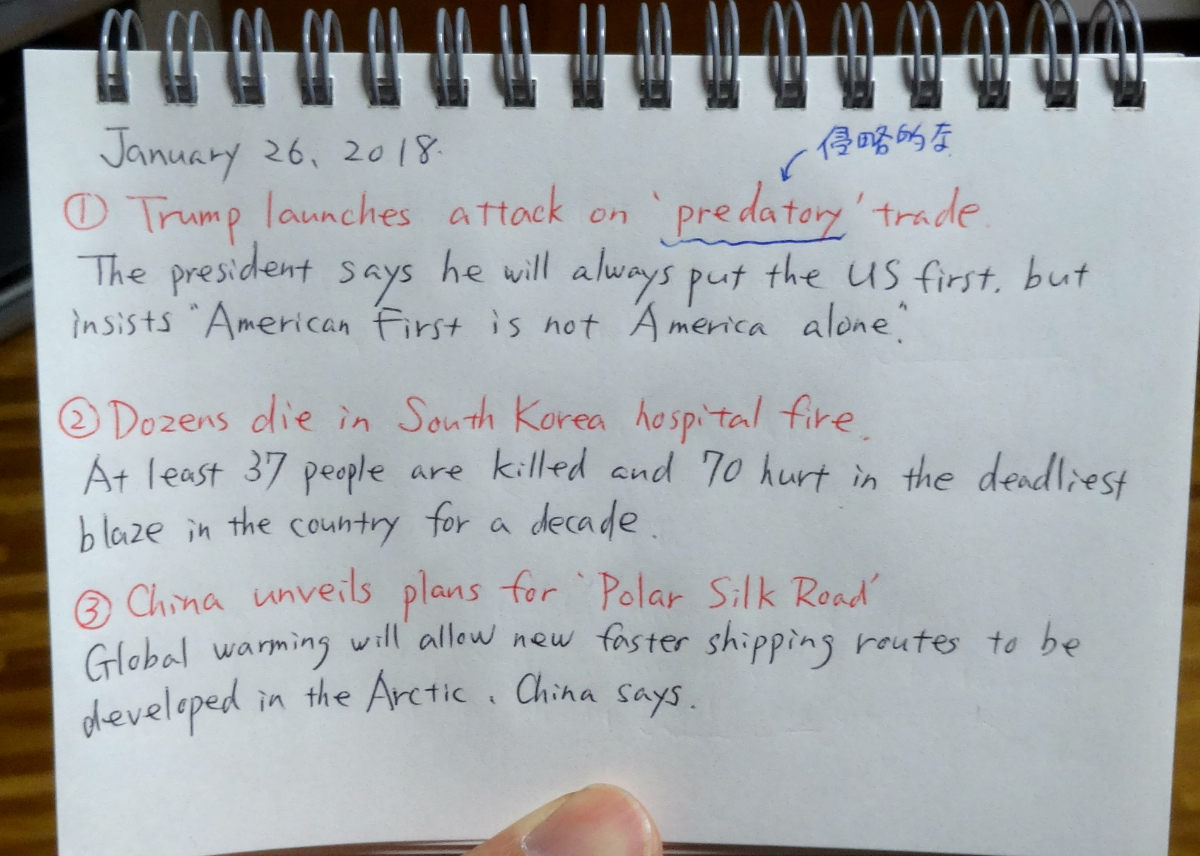 January 26, 2018.
侵略的な
① Trump launches attack on 'predatory' trade.
The president says he will always put the US first, but
insists "American First is not America alone."
② Dozens die in South Korea hospital fire.
At least 37 people are killed and 70 hurt in the deadliest
blaze in the country for a decade.
③ China unveils plans for 'Polar Silk Road'
Global warming will allow new faster shipping routes to be
developed in the Arctic, China says.